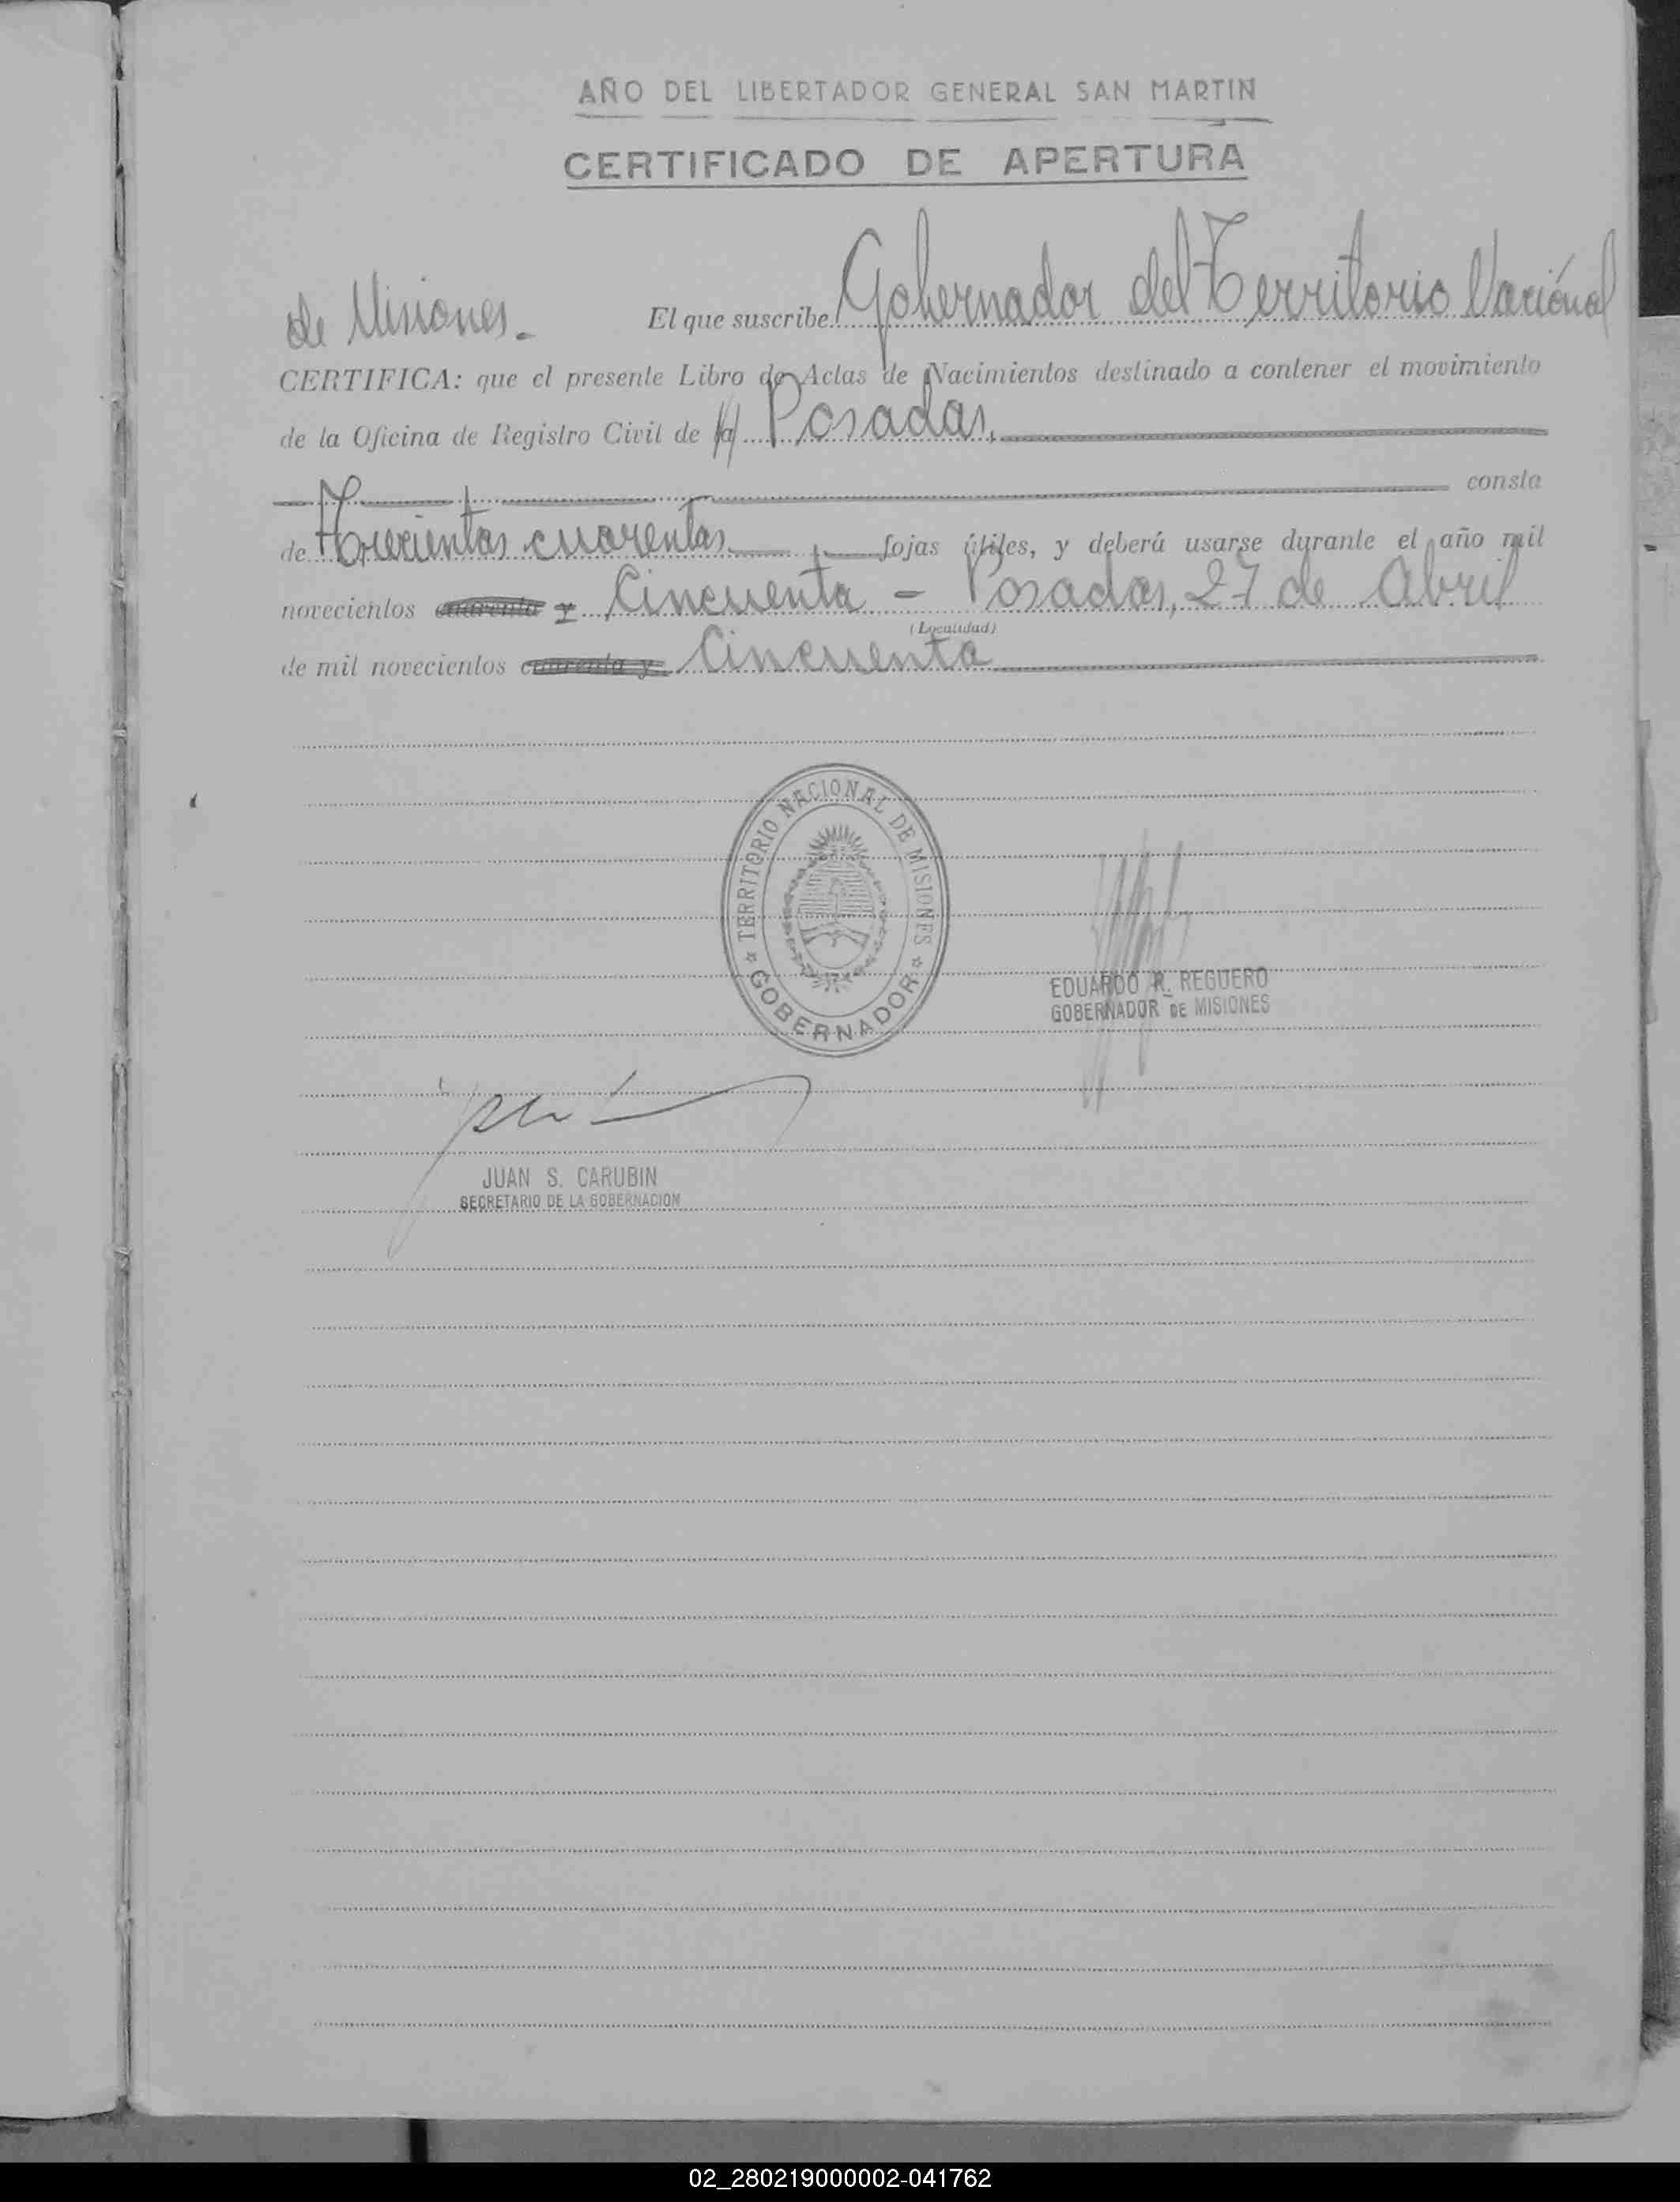 AÑO DEL LIBERTADOR GENERAL SAN MARTIN
CERTIFICADO DE APERTURA
El que suscribe Gobernador del Territorio Naciónal
de Misiones.-
CERTIFICA: que el presente Libro de Actas de Nacimientos destinado a contener el movimiento
de la Oficina de Registro Civil de la Posadas,
consta
de Trecientas cuarentas fojas útiles, y deberá usarse durante el año mil
novecientos cuarenta y Cincuenta - Posadas, 27 de Abril
(Localidad)
de mil novecientos cuarenta y Cincuenta
TERRITORIO NACIONAL DE MISIONES
GOBERNADOR
EDUARDO R. REGUERO
GOBERNADOR DE MISIONES
JUAN S. CARUBIN
SECRETARIO DE LA GOBERNACION
02_280219000002-041762